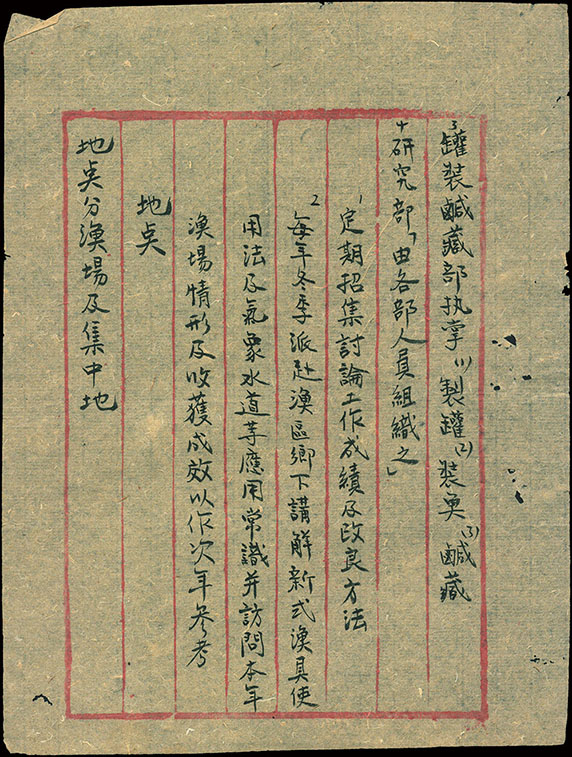 3罐装鹹藏部执掌(1)製罐(2)装奥(3)鹹藏
4研究部「由各部人員組織之」
1定期招集討論工作成績及改良方法
2每年冬季派赴渔區鄉下講解新式渔具使
用法及氣象水道等應用常識并訪問本年
漁場情形及收獲成效以作次年參考
地奌
地奌分漁場及集中地